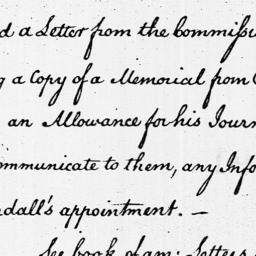 d a Letter from the Commissi
g a Copy of a Memorial from
an Allowance for his Journ
ommunicate to them, any Info
dall's appointment. —
See book of am: Letters